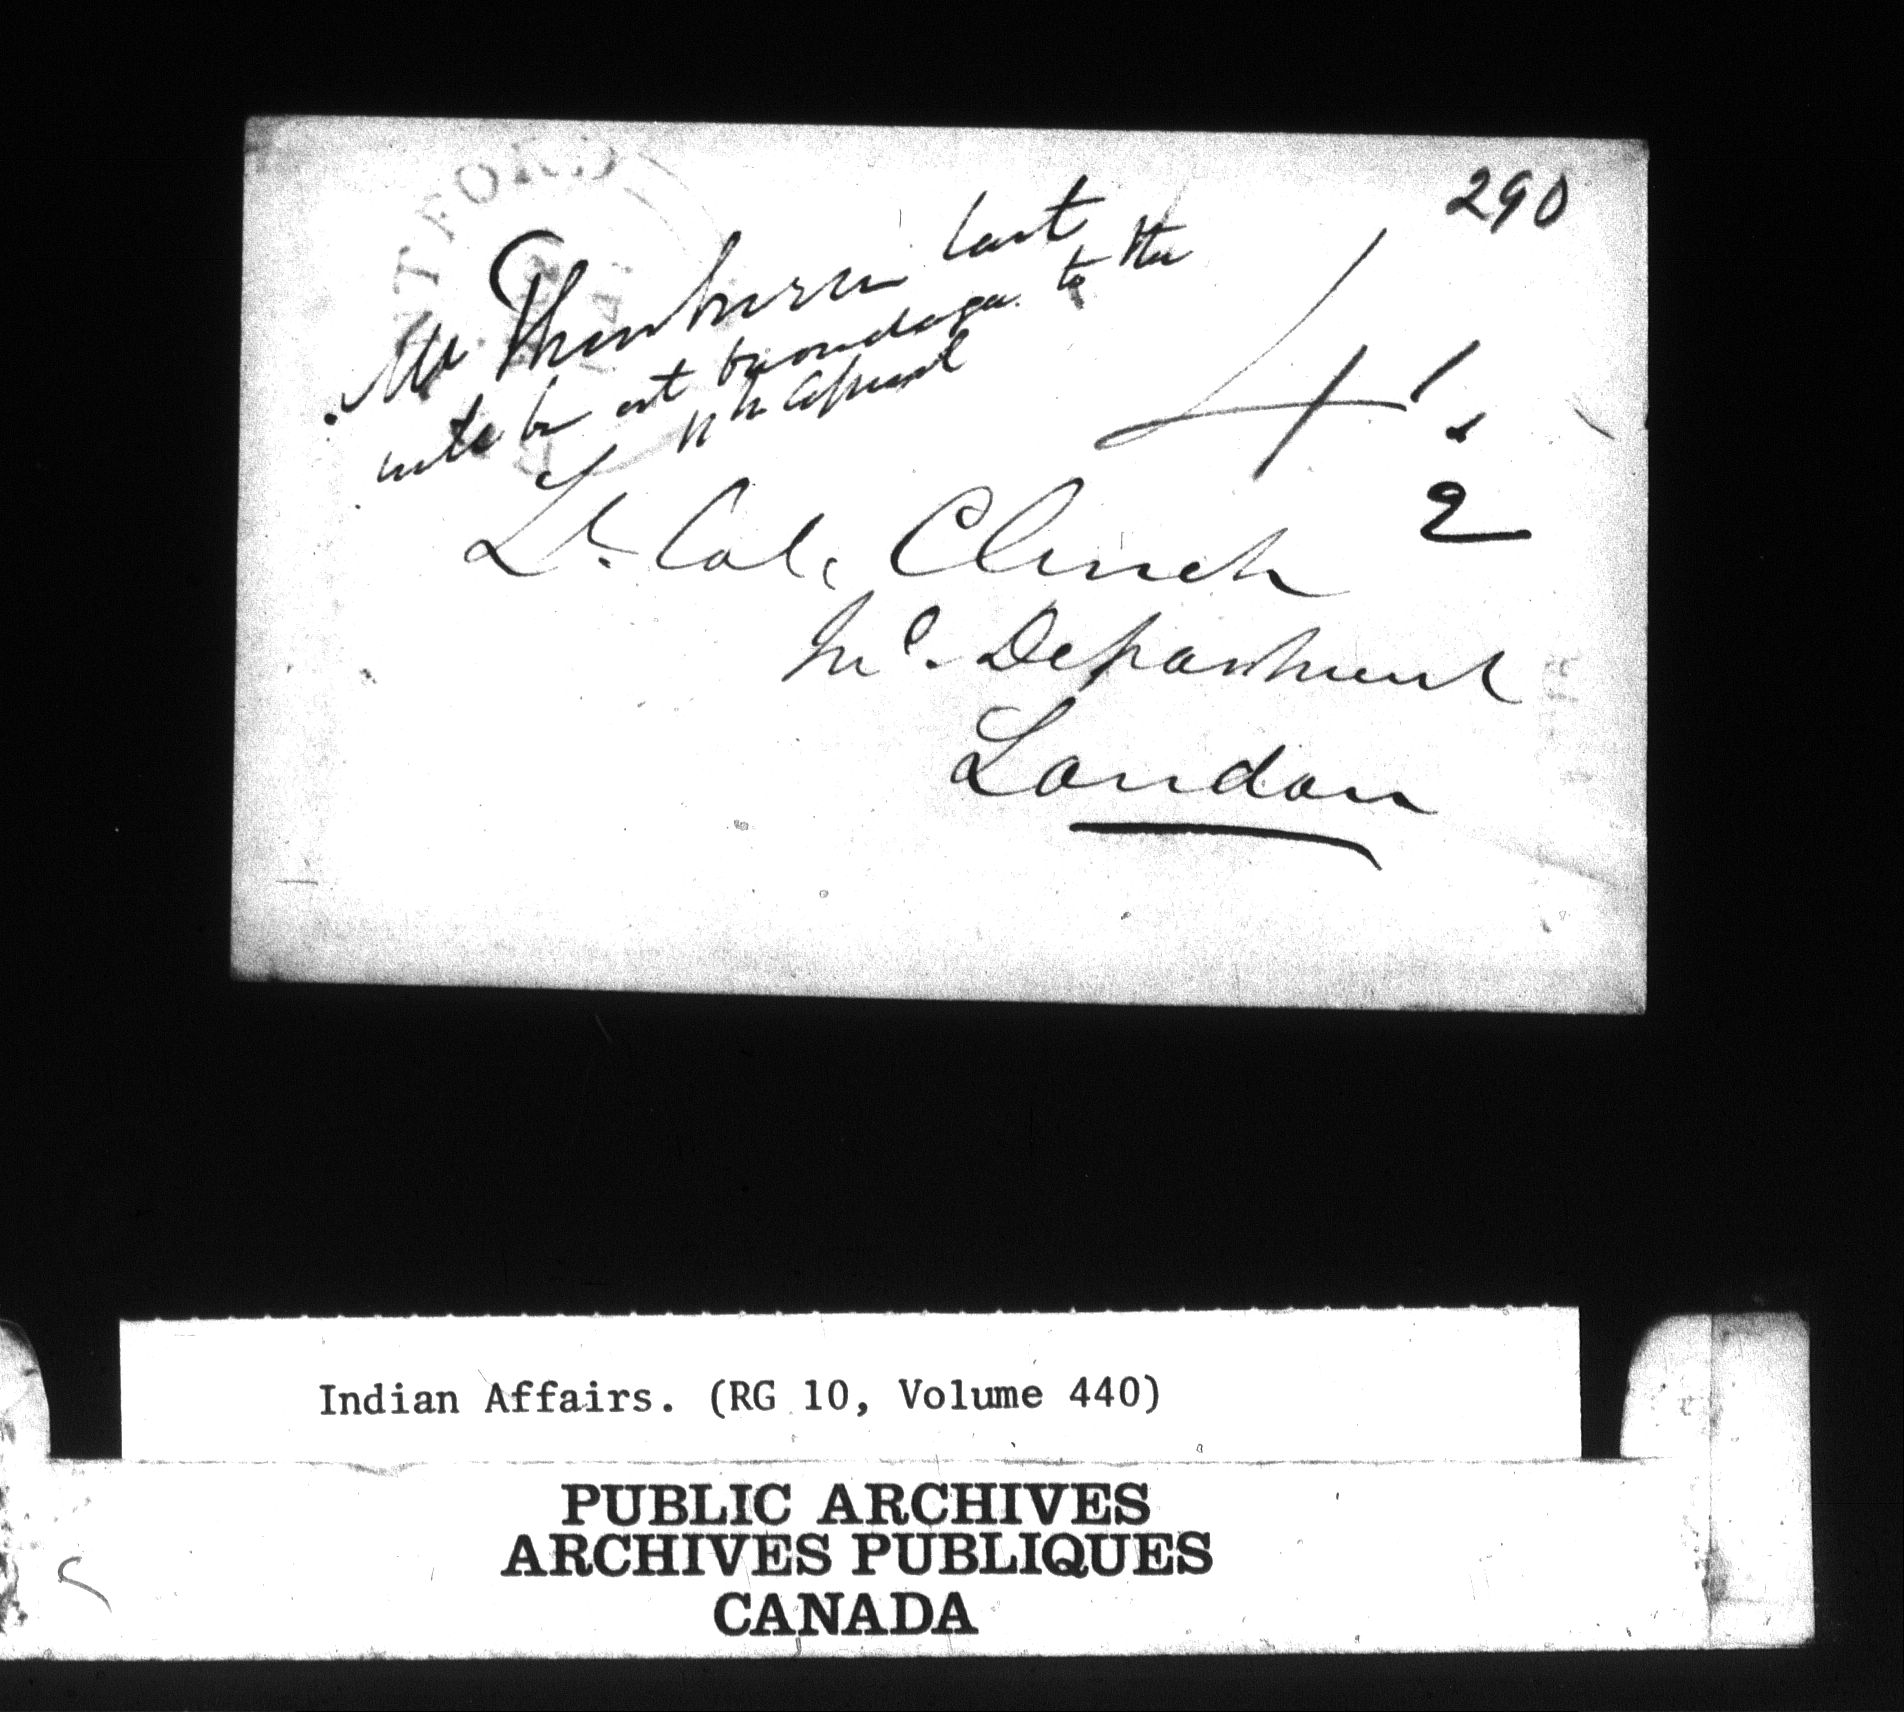 290
Mr Thorburn last
to be at Onondaga to the
April
4 1/2
Lt. Col. Clench
In. Department
London
Indian Affairs. (RG 10, Volume 440)
PUBLIC ARCHIVES
ARCHIVES PUBLIQUES
CANADA